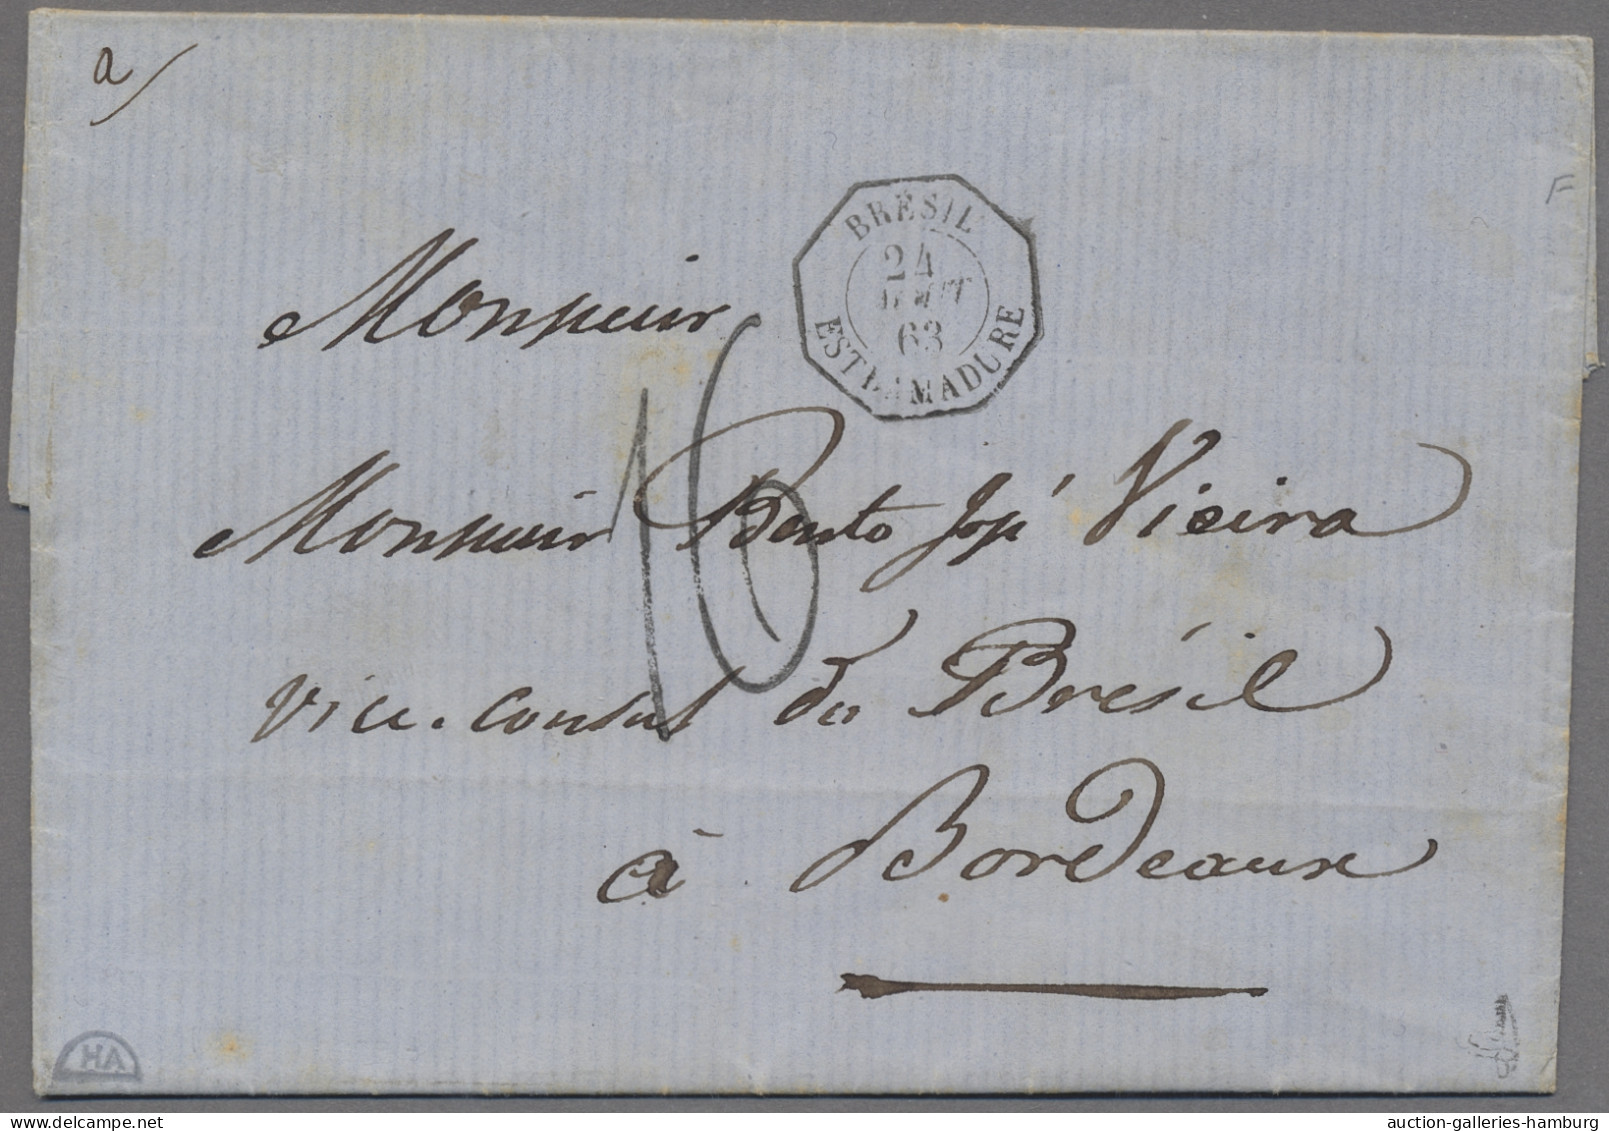 a/
BRÉSIL
24
AOUT
63
ESTRAMADURE
F
Monsieur
16
Monsieur Bento José Vieira
vice-consul du Brésil
à Bordeaux
HA
auction-galleries-hamburg